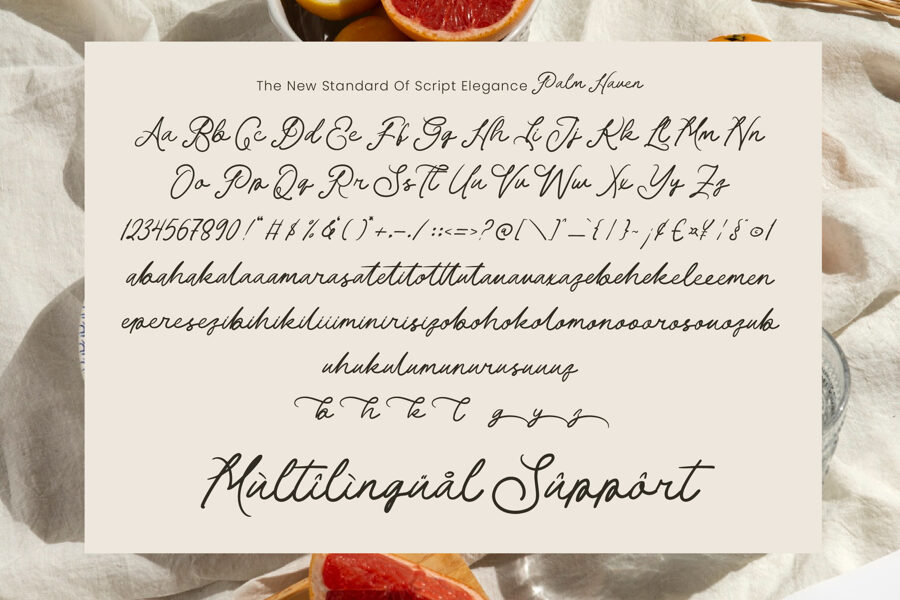 The New Standard Of Script Elegance Palm Haven
Aa Bb Cc Dd Ee Ff Gg Hh Ii Jj Kk Ll Mm Nn
Oo Pp Qq Rr Ss Tt Uu Vv Ww Xx Yy Zz
1234567890!"#$%&'()*+,-./:;<=>?@[\]^_`{|}~¡¢£¤¥¦§¨©
abahakalaaamarasatetitotttutauavaxazebehekeleeemen
eperesezibihikiliiiminirisizobohokolomonooorosouozub
uhukulumunurusuuuz
b h k l g y z
Mùltîlìngüål Sûppôrt